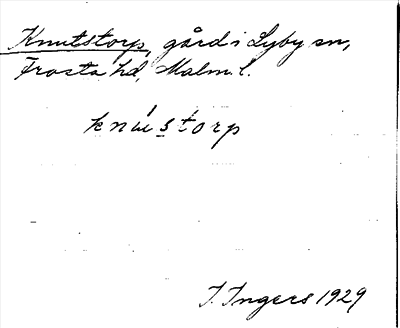 Knutstorp, gård i Lyby sn,
Frosta hd, Malm. l.
knu̍s̱to̍rp
I. Ingers 1929